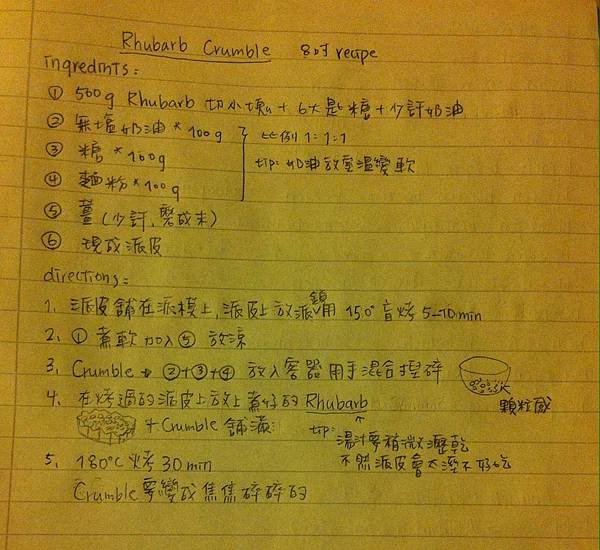 Rhubarb Crumble 8吋 recipe
ingredints:
① 500g Rhubarb 切小塊 + 6大匙糖 + 少許奶油
② 無塩奶油 * 100g
③ 糖 * 100g
④ 麵粉 * 100g
比例 1:1:1
tip: 奶油放室溫變軟
⑤ 薑 (少許, 磨成末)
⑥ 現成派皮
directions:
1. 派皮舖在派模上, 派皮上放派鎮用 150° 盲烤 5-10 min
2. ① 煮軟加入 ⑤ 放涼
3. Crumble → ②+③+④ 放入容器用手混合捏碎
顆粒感
4. 在烤過的派皮上放上煮好的 Rhubarb
+ Crumble 舖滿
tip: 湯汁要稍微瀝乾
不然派皮會太溼不好吃
5. 180°C 烤 30 min
Crumble 要變成焦焦碎碎的